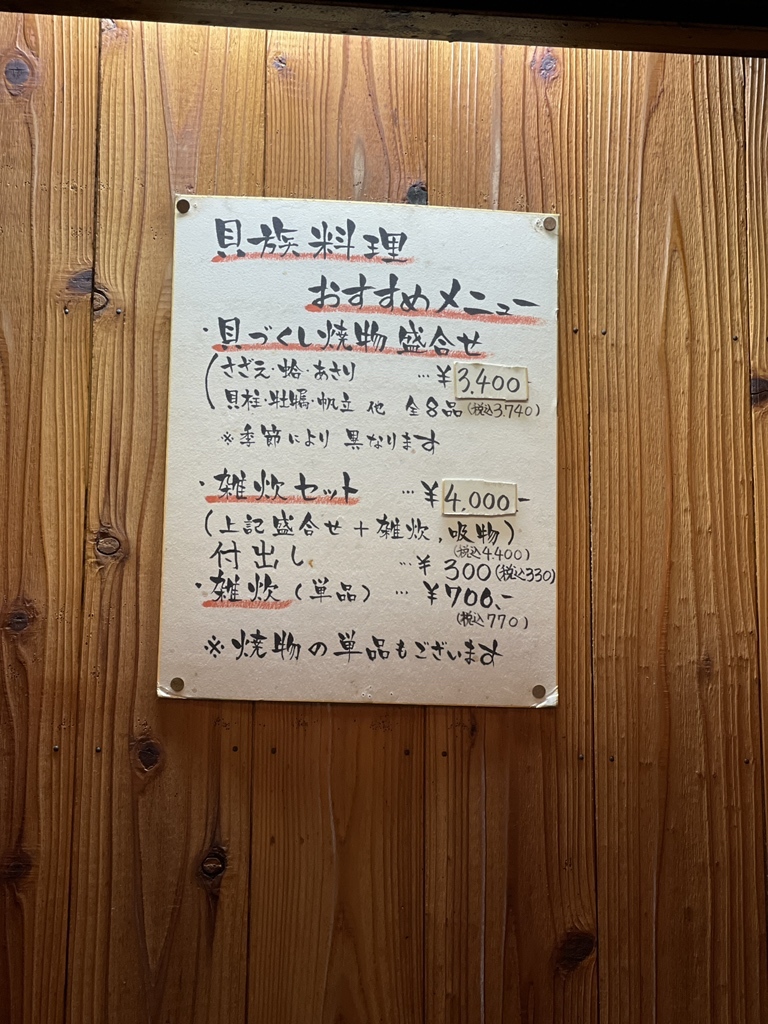 貝族料理
おすすめメニュー
・貝づくし焼物盛合せ
(さざえ・蛤・あさり …¥3,400-
貝柱・牡蠣・帆立 他 全8品(税込3.740)
※季節により異なります
・雑炊セット …¥4,000-
(上記盛合せ+雑炊,吸物)
(税込4.400)
付出し …¥300(税込330)
・雑炊(単品) …¥700.-
(税込770)
※焼物の単品もございます